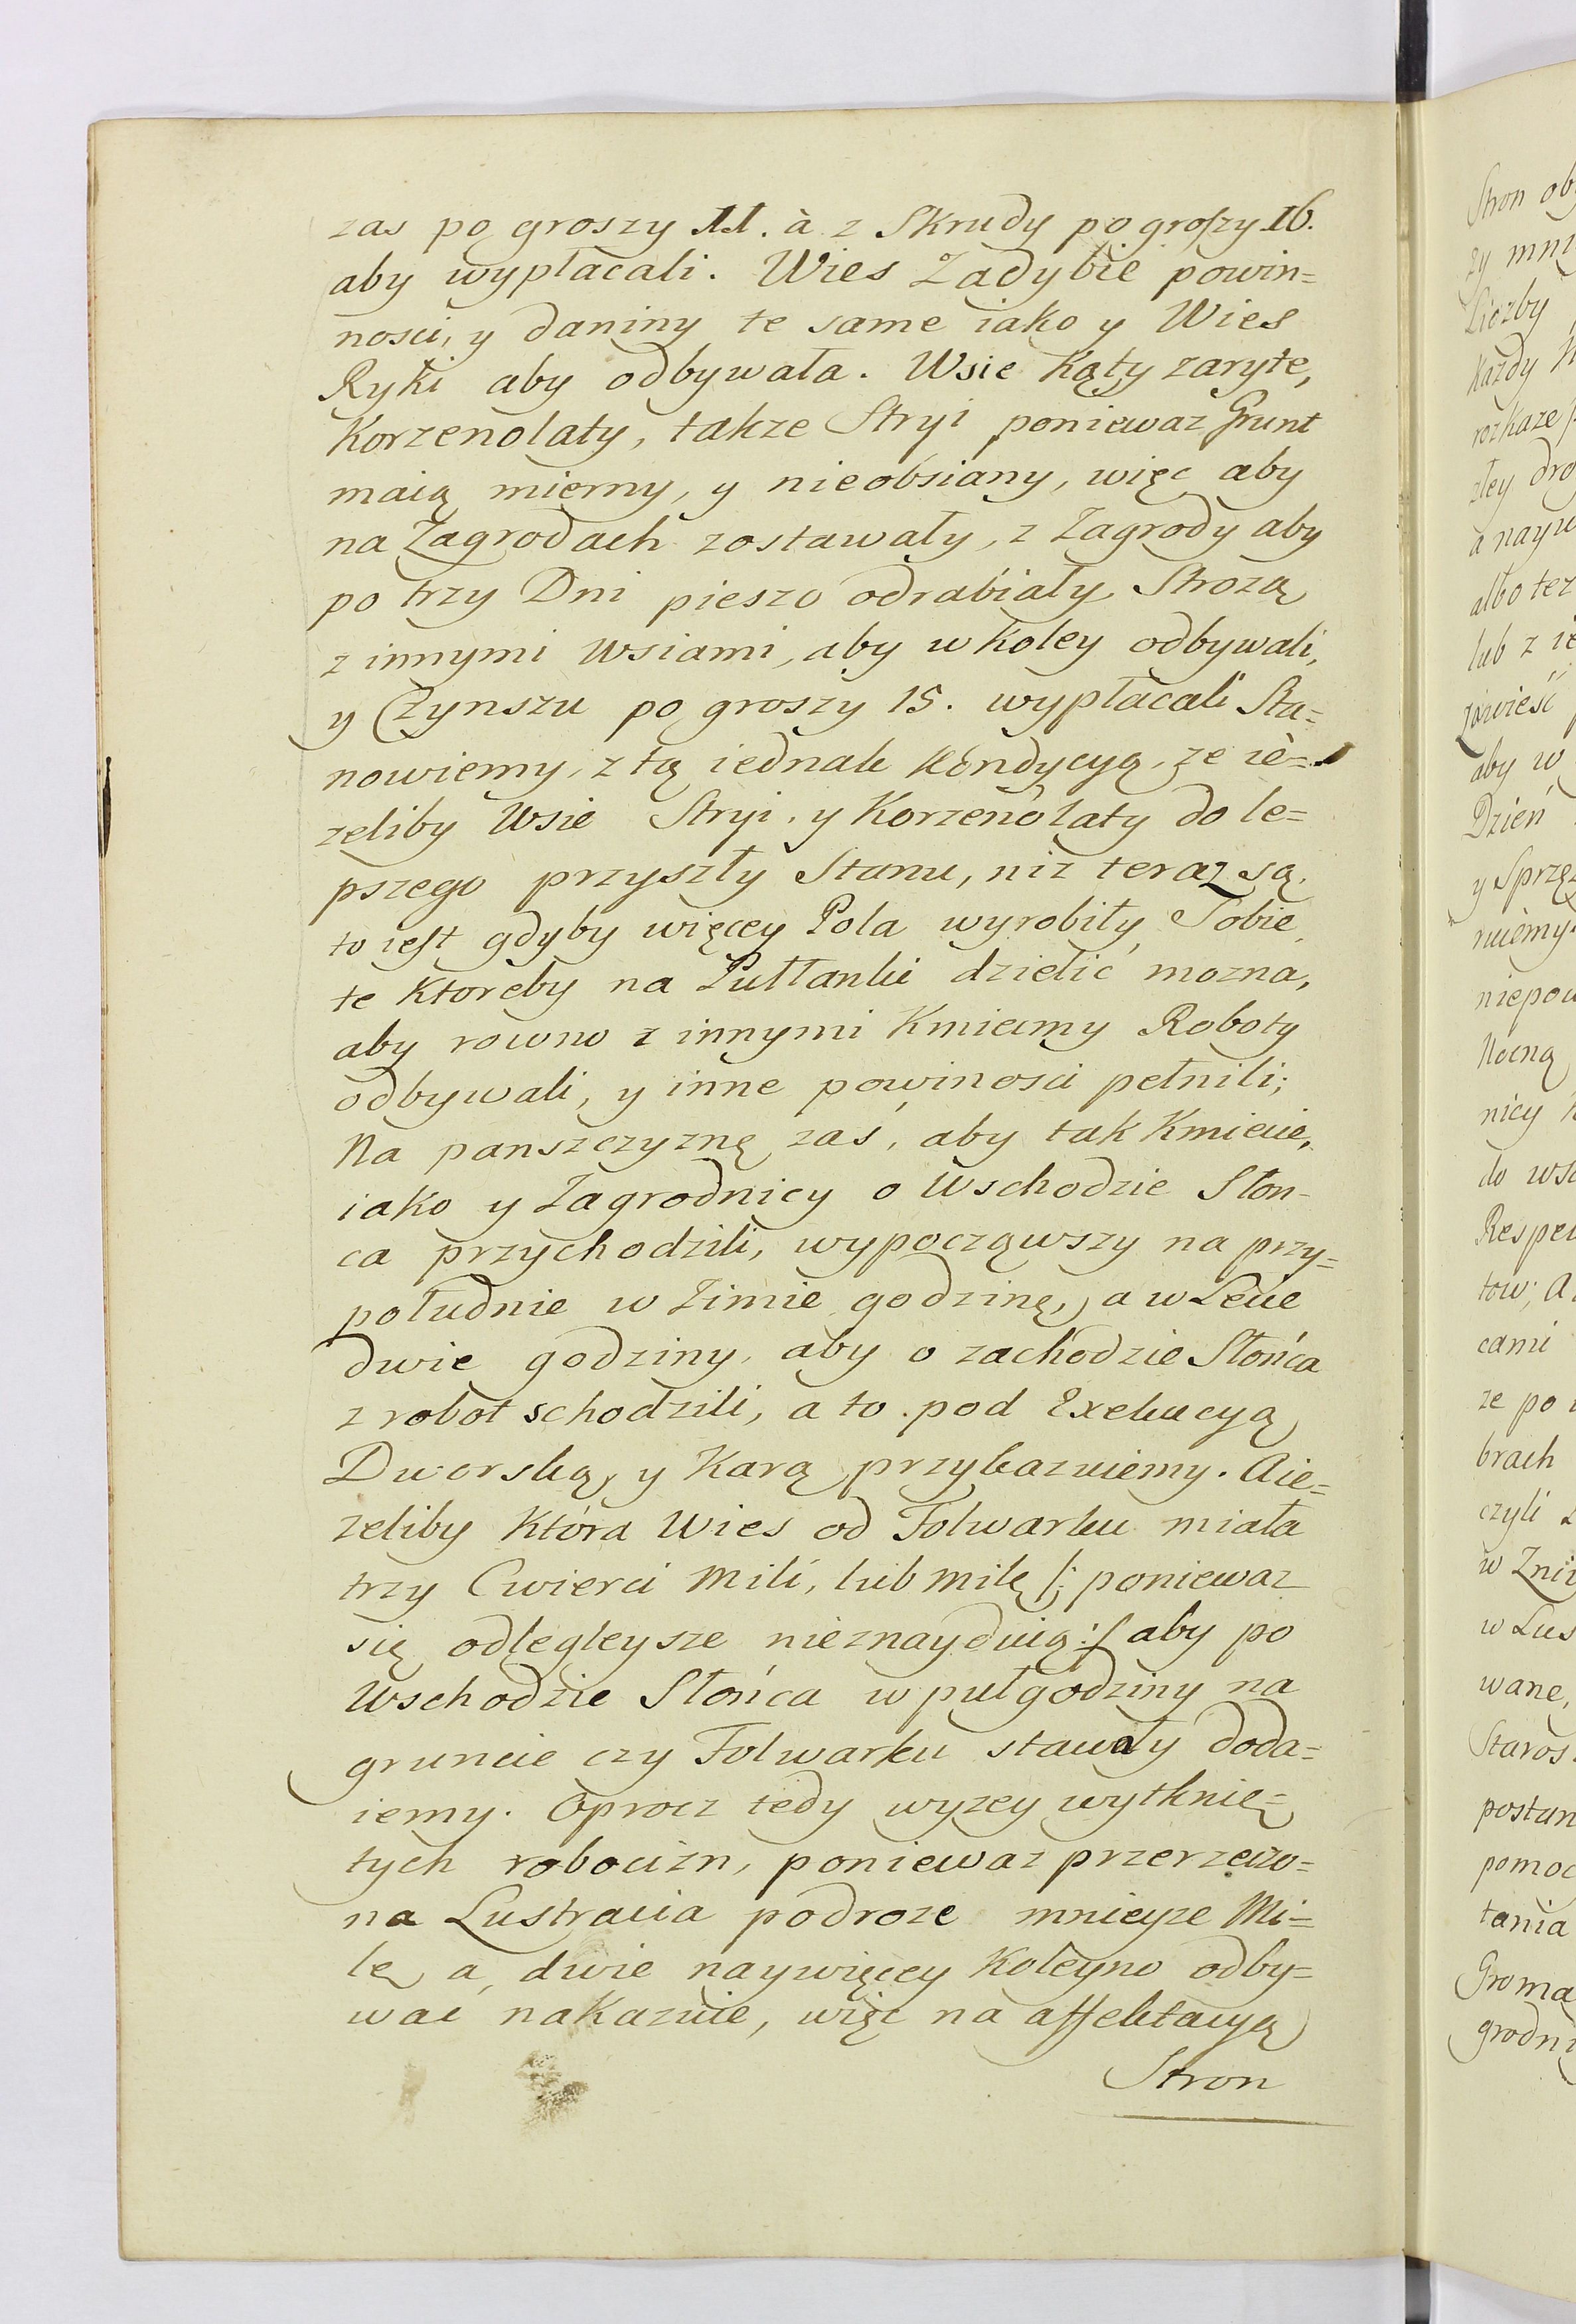 zas po groszy 11. à z Skrudy po groszy 16.
aby wypłacali. Wies Zadybie powin=
nosci, y daniny te same iako y Wies
Ryki aby odbywała. Wsie Kąty zaryte,
Korzenolaty, takze Stryi poniewaz Grunt
maią mierny, y nieobsiany, więc aby
na Zagrodach zostawały, z Zagrody aby
po trzy Dni pieszo odrabiały, Strozą
z innymi Wsiami, aby w koley odbywali,
y Czynszu po groszy 15. wypłacali Sta=
nowiemy, z tą iednak Kondycyą, ze ie=
zeliby Wsie Stryi, y Korzenolaty do le=
pszego przyszły Stanu, niz teraz są,
to iest gdyby więcey Pola wyrobiły Sobie,
te ktoreby na Pułłanki dzielić mozna,
aby rowno z innymi Kmieciami Roboty
odbywali, y inne powinosci pełnili;
Na panszczyznę zaś, aby tak Kmiecie,
iako y Zagrodnicy o Wschodzie Słon-
ca przychodzili, wypocząwszy na przy=
południe w Zimie godzinę, a w Lecie
dwie godziny, aby o zachodzie Słońca
z robot schodzili, a to pod Exekucyą
Dworską, y Karą przykazuiemy. A ie=
zeliby ktora Wies od Folwarku miała
trzy Cwierci Mili, lub milę /: poniewaz
się odlegleysze nieznayduią :/ aby po
Wschodzie Słońca w puł godziny na
gruncie czy Folwarku stawały doda=
iemy. Oprocz tedy wyzey wytknię=
tych robocizn, poniewaz przerzeczo=
na Lustracia podroze mnieysze Mi=
lę a dwie naywięcey koleyno odby=
wać nakazuie, więc na affektacyą
Stron
Stron ob
zy mni
Liczby
Kazdy
rozkaze
złey dro
a nayw
albo tez
lub z ie
zawieść
aby w
Dzień
y Sprzęz
nuiemy
niepow
Nocną
nicy
do wsc
Respec
tow; A
cami
ze po
brach
czyli
w Zni
w Lus
wane,
Staros
postan
pomoc
tania
Groma
grodni